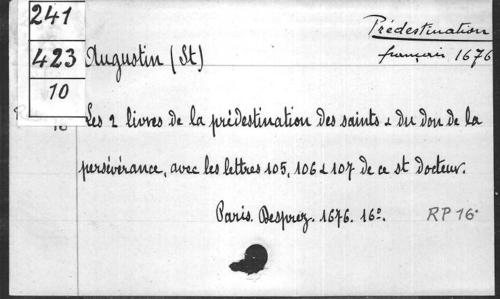 241
423
10
Prédestination
français 1676
Augustin (St)
Les 2 livres de la prédestination des saints & du don de la
persévérance, avec les lettres 105, 106 & 107 de ce st docteur.
Paris. Desprez. 1676. 16º.
RP 16º